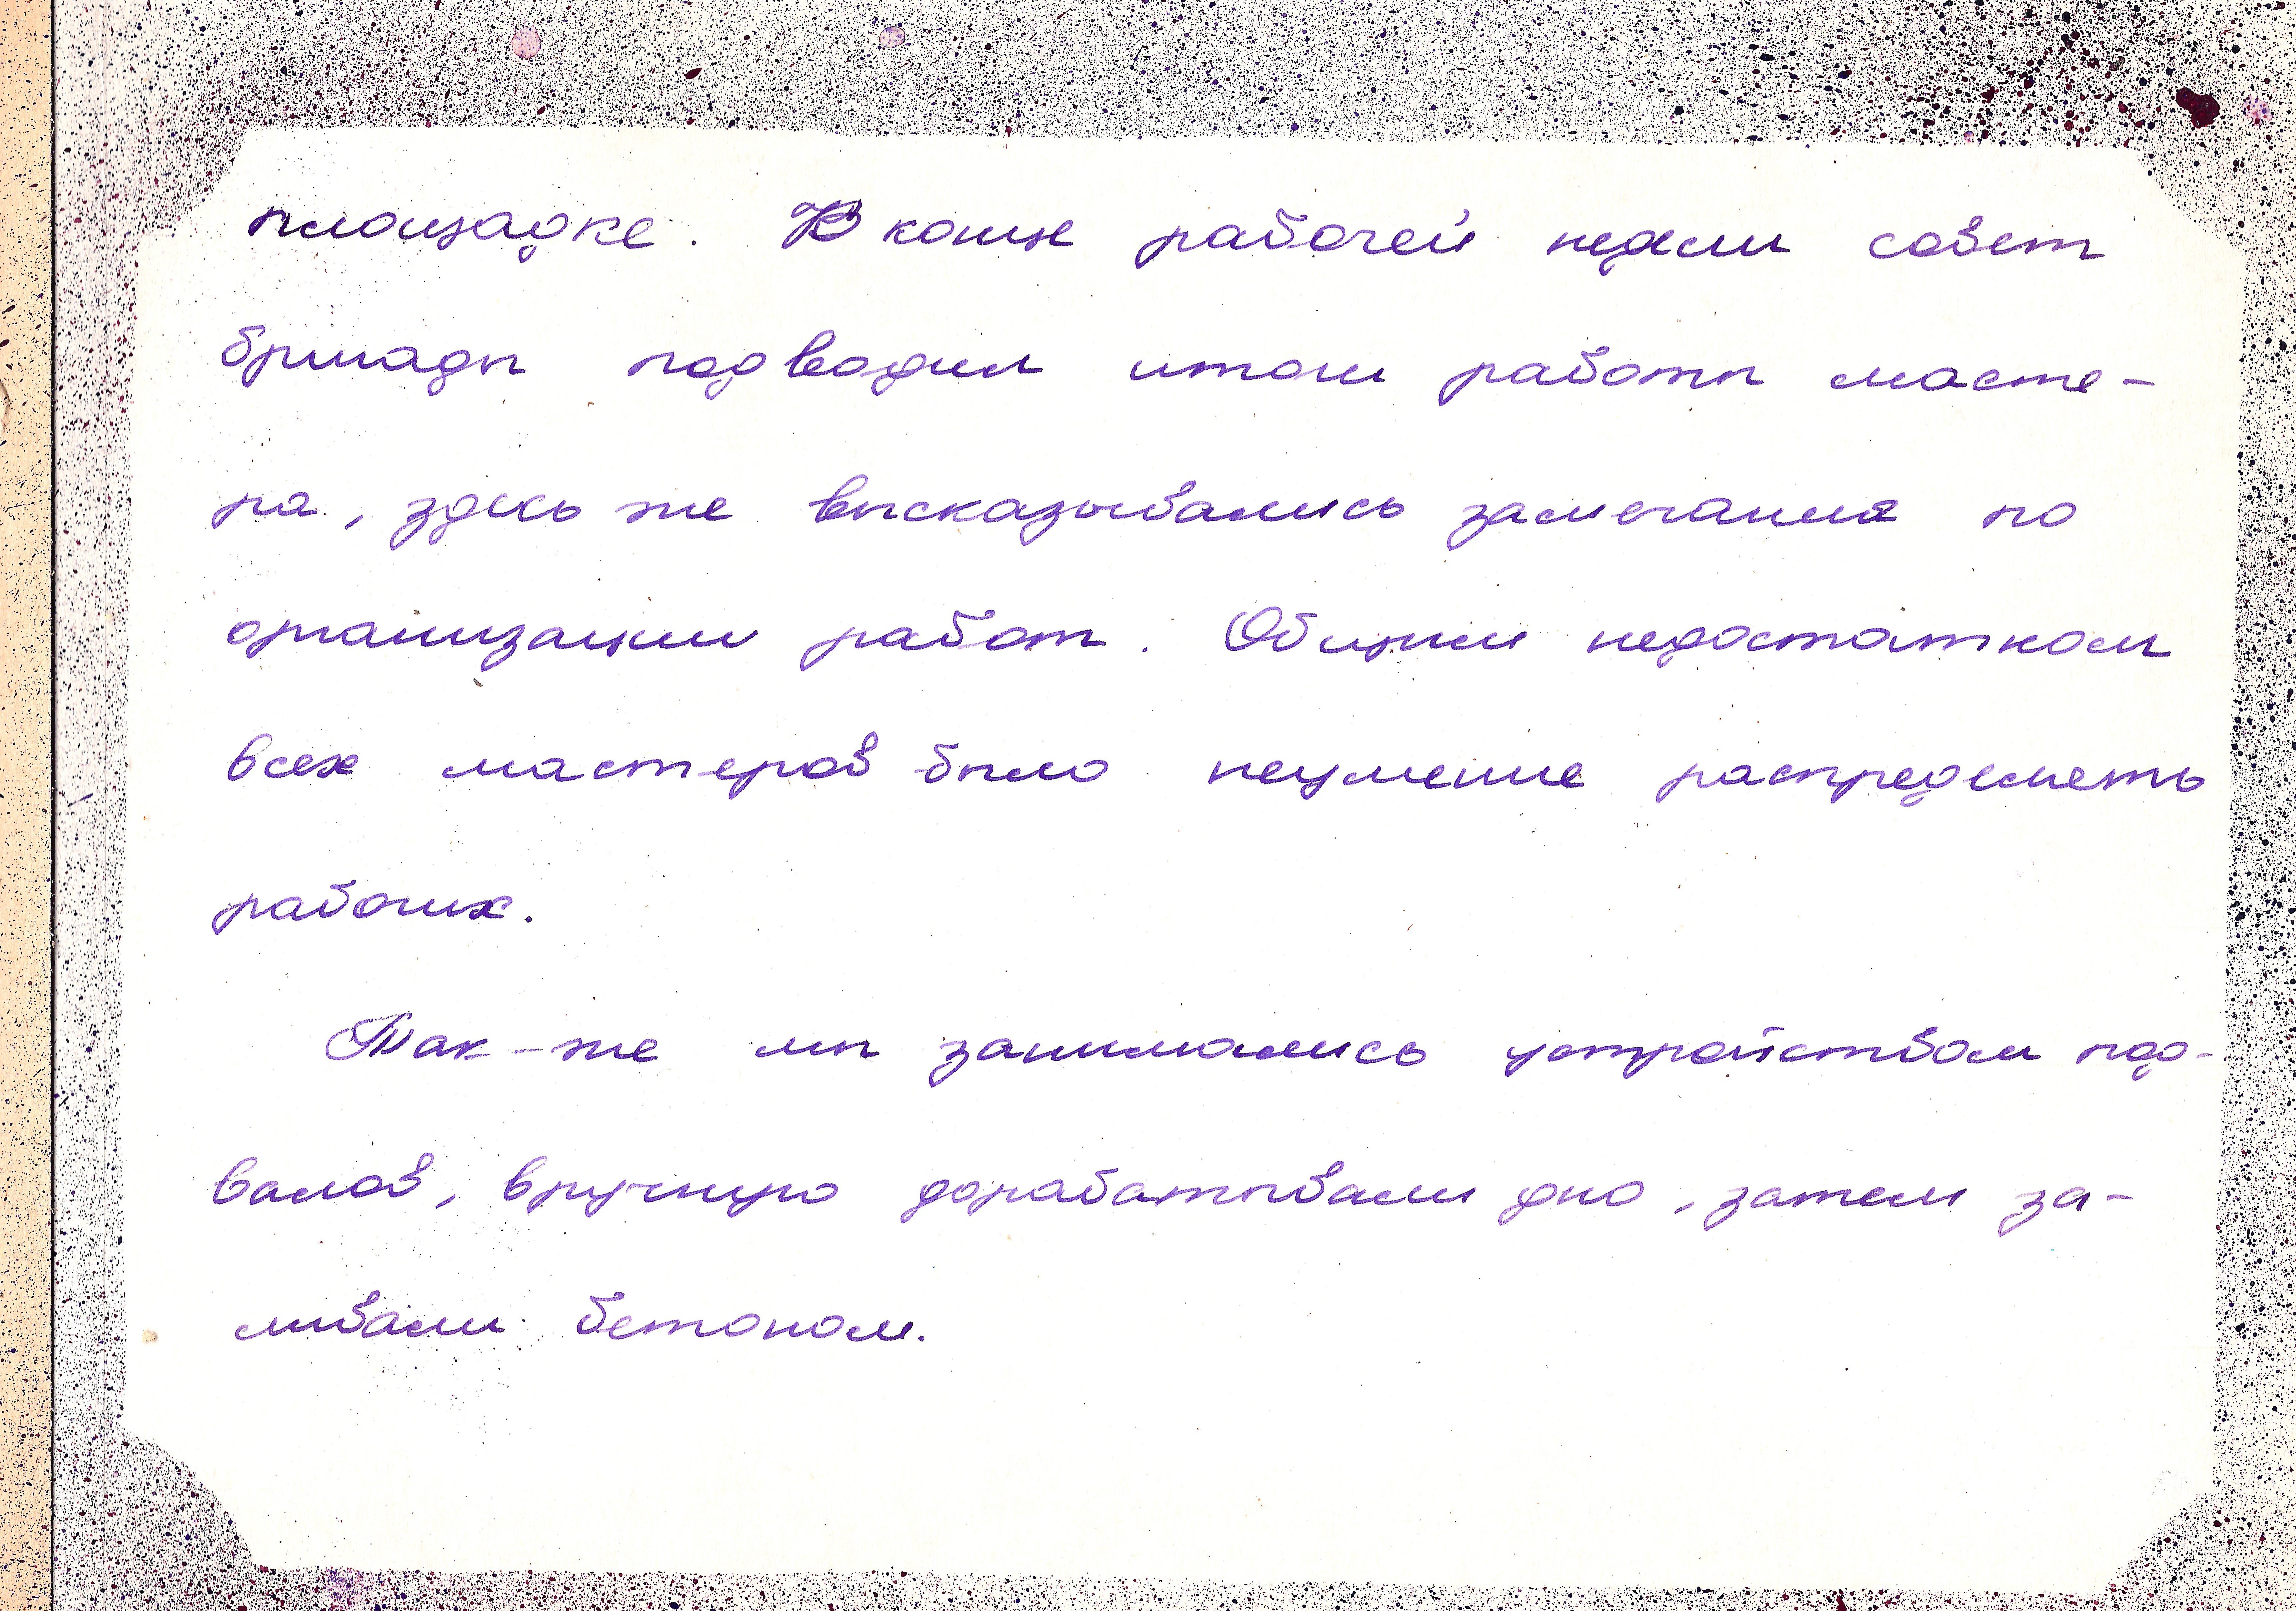 площадке. В конце рабочей недели совет
бригады подводил итоги работы масте-
ра, здесь же высказывались замечания по
организации работ. Общим недостатком
всех мастеров было неумение распределеть
рабочих.
Так-же мы занимались устройством под-
валов, вручную дорабатывали дно, затем за-
ливали бетоном.